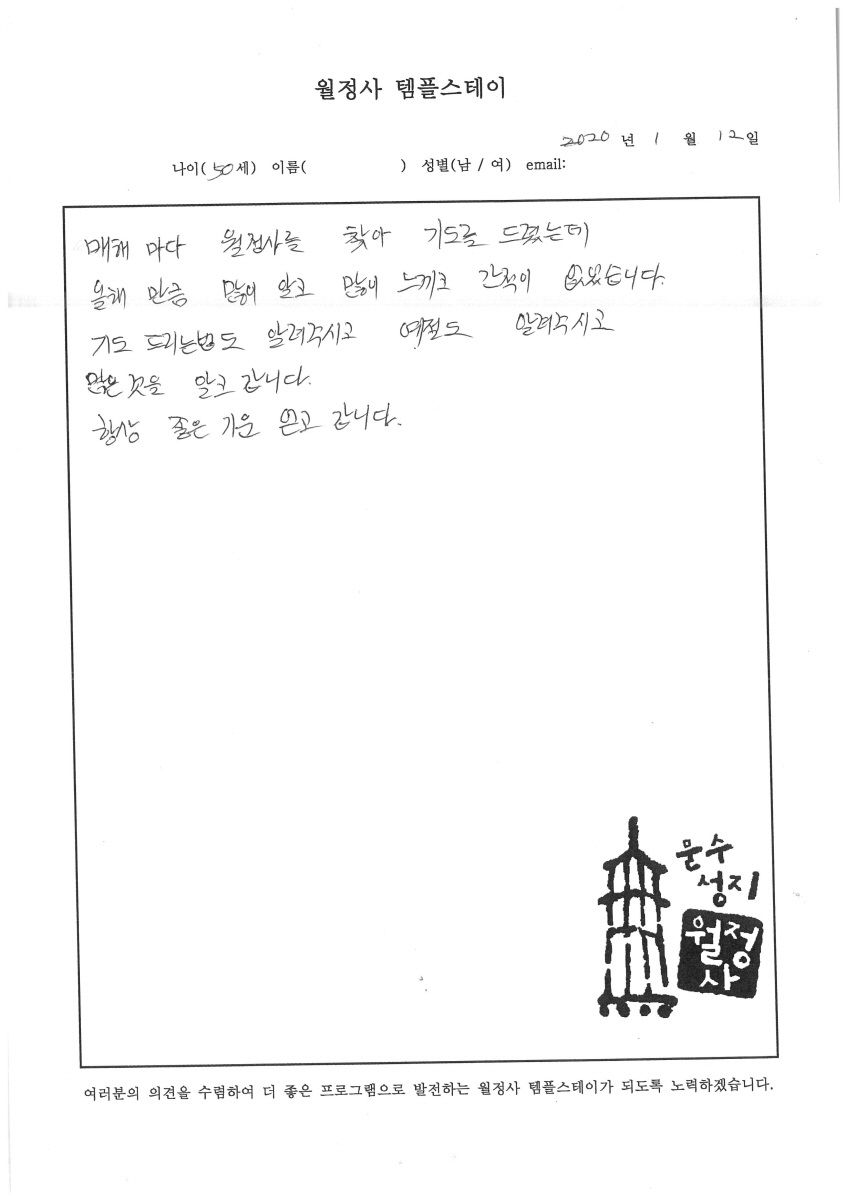 월정사 템플스테이
2020 년 1 월 12일
나이( 50세) 이름( ) 성별(남 / 여) email:
매해 마다 월정사를 찾아 기도를 드렸는데
올해 만큼 많이 알고 많이 느끼고 간적이 없었습니다.
기도 드리는법도 알려주시고 예절도 알려주시고
많은 것을 알고 갑니다.
항상 좋은 기운 얻고 갑니다.
문수
성지
월정
사
여러분의 의견을 수렴하여 더 좋은 프로그램으로 발전하는 월정사 템플스테이가 되도록 노력하겠습니다.